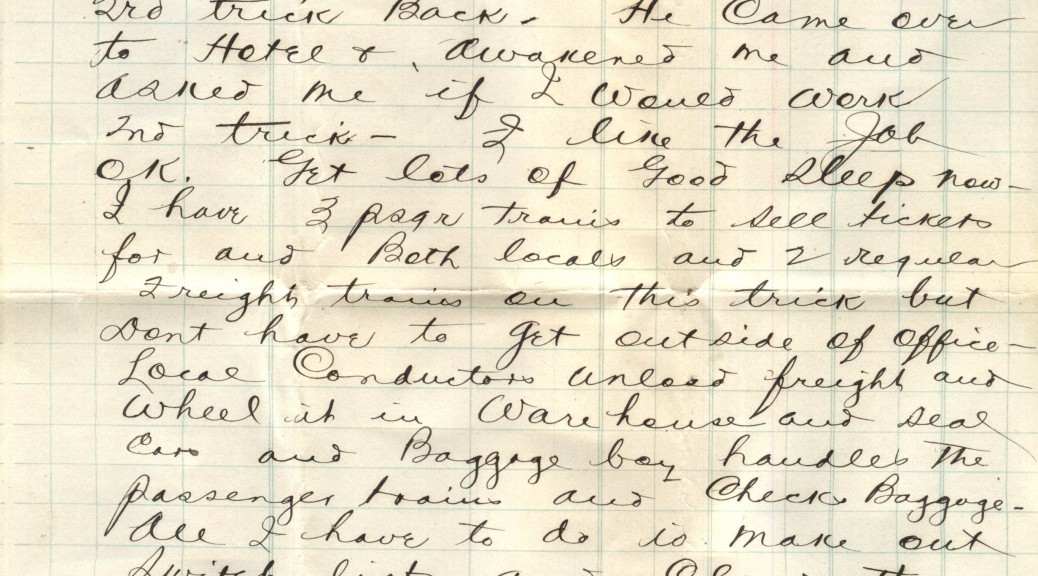 3rd trick Back - He Came over
to Hotel & awakened me and
asked me if I would work
2nd trick - I like the Job
OK. Get lots of Good sleep now -
I have 3 psgr trains to sell tickets
for and Both locals and 2 regular
Freight trains on this trick but
Dont have to get outside of office -
Local Conductors unload freight and
Wheel it in Ware house and seal
Cars and Baggage boy handles the
passenger trains and Checks Baggage -
All I have to do is make out
Switch lists and